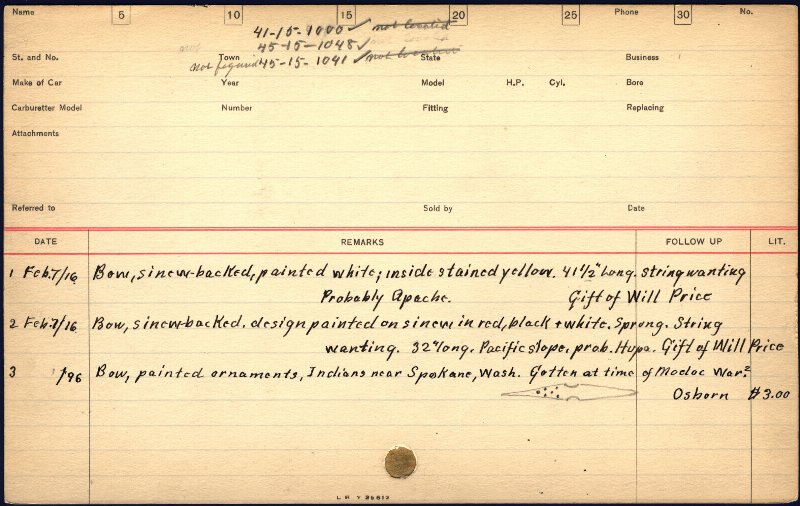 Name 5 10 15 20 25 Phone 30 No.
41-15-1000 ✓ not located
45-15-1048 ✓
St. and No. Town State Business
not figured 45-15-1041 ✓ not located
Make of Car Year Model H.P. Cyl. Bore
Carburetter Model Number Fitting Replacing
Attachments
Referred to Sold by Date
DATE REMARKS FOLLOW UP LIT.
1 Feb.7/16 Bow, sinew-backed, painted white; inside stained yellow. 41 1/2" long. string wanting
Probably Apache. Gift of Will Price
2 Feb.7/16 Bow, sinew-backed. design painted on sinew in red, black + white. Sprung. String
wanting. 32" long. Pacific slope, prob. Hupa. Gift of Will Price
3 /96 Bow, painted ornaments, Indians near Spokane, Wash. Gotten at time of Modoc War?
Osborn $3.00
L B Y 26612